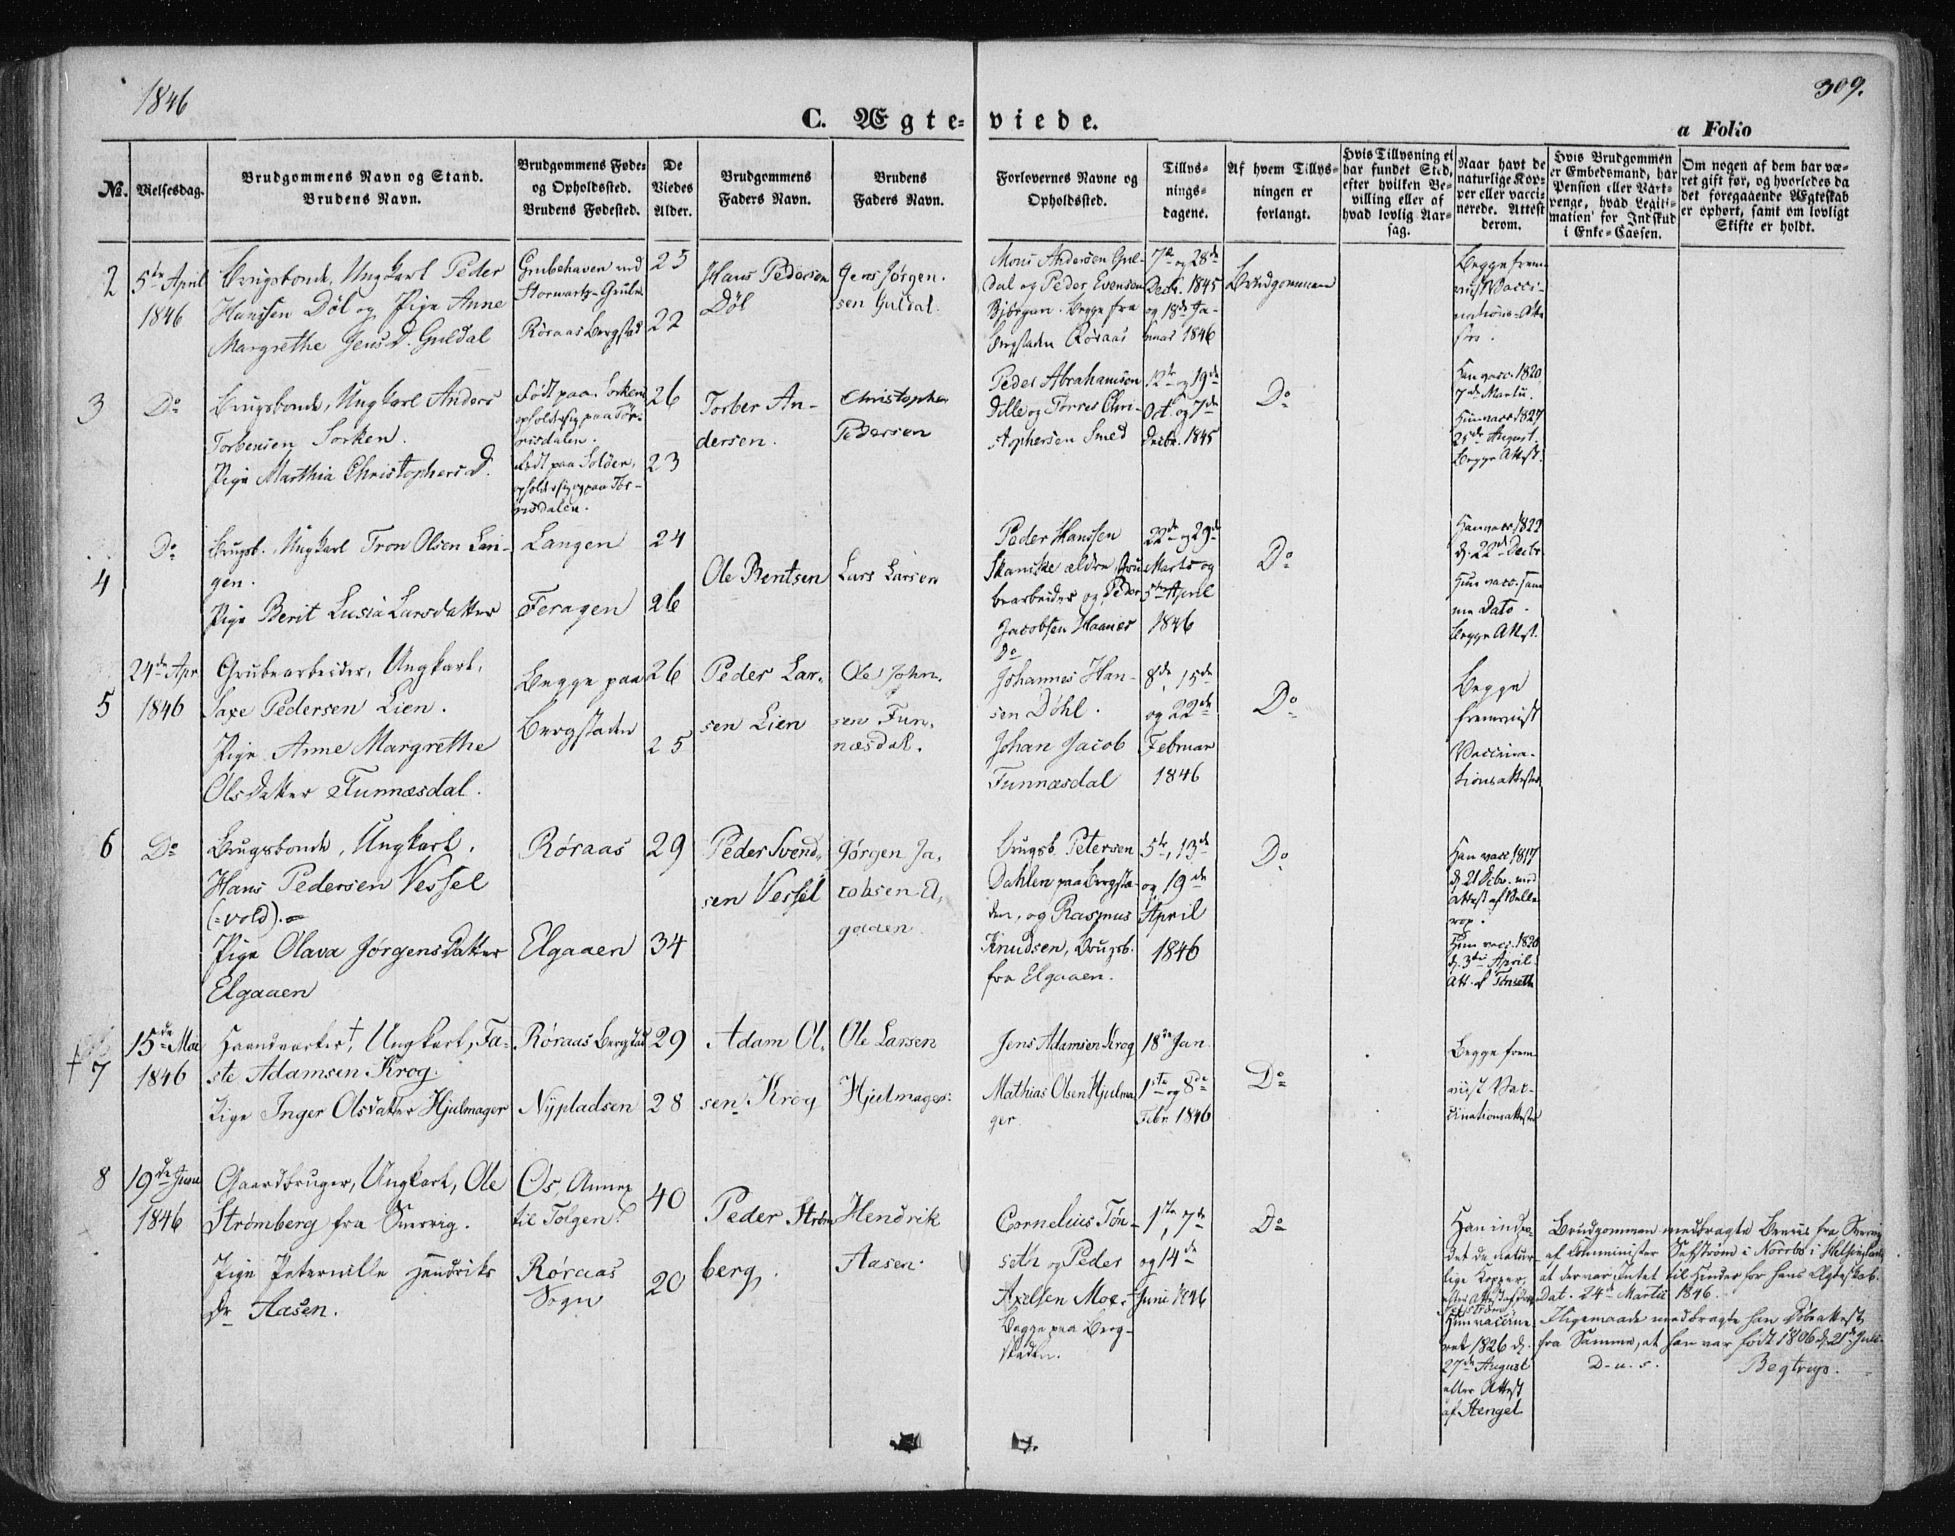 1846
309.
C. Ægte-viede.
a Folio
No. Vielsesdag. Brudgommens Navn og Stand. Brudens Navn. Brudgommens Føde- og Opholdssted. Brudens Fødested. De Viedes Alder. Brudgommens Faders Navn. Brudens Faders Navn. Forlovernes Navne og Opholdssted. Tillysningsdagene. Af hvem Tillysningen er forlangt. Hvis Tillysning ei har fundet Sted, efter hvilken Bevilling eller af hvad lovlig Aarsag. Naar havt de naturlige Kopper eller vaccinerede. Attest derom. Hvis Brudgommen er Embedsmand, har Pension eller Vartpenge, hvad Legitimation for Indskud i Enke-Cassen. Om nogen af dem har været gift før, og hvorledes da det foregaaende Ægteskab er ophørt, samt om lovligt Skifte er holdt.
2
5te April
1846
Brugsbonde, Ungkarl Peder
Hanssen Döl og Pige Anne
Margrethe Jens D. Guldal
Grubehaven ved
Storwartz-Grube
Röraas Bergstad
25
22
Hans Pedersen
Döl
Jens Jörgen-
sen Guldal.
Mons Andersen Gul-
dal og Peder Evensen
Bjørgan. Begge fra
Bergstaden Røraas
7de og 28de
Decbr. 1845
og 18de Ja-
nuar 1846
Brudgommen
Begge frem-
viist Vacci-
nations-Atte-
ster.
3
Do
Brugsbonde, Ungkarl Anders
Torbersen Sorken.
Pige Marthia Christophers D.
Født paa Sorken
opholdt sig paa Tør-
risdalen.
Født paa Soløer,
opholdt sig paa Tör-
risdalen.
26
23
Torber An-
dersen.
Christopher
Pedersen
Peder Abrahamsen
Dille og Torres Chri-
stophersen Smed
12te og 19de
Oct. og 7de
Decbr. 1845
Do
Han vacc. 1820
7de Martii.
Hun vacc. 1827
25de August.
Begge Attest.
4
Do
Brugsb. Ungkarl Tron Olsen Lan-
gen.
Pige Berit Lusia Larsdatter
Langen
Feragen
24
26
Ole Bentsen
Lars Larsen
Peder Hanssen
Skancke ældre Gru-
bearbeider og Peder
Jacobsen Haaner
Do
22de og 29de
Marts og
5te April
1846
Do
Han vacc. 1822
d. 22de Decbr
Hun vacc. sam-
me Dato.
Begge Attst.
5
24de Apr
1846
Grubearbeider, Ungkarl,
Saxe Pedersen Lien.
Pige Anne Margrethe
Olsdatter Funnæsdal.
Begge paa
Bergstaden
26
25
Peder Lar-
sen Lien
Ole John-
sen Fun-
næsdal.
Johannes Han-
sen Döhl.
Johan Jacob
Funnæsdal
8de, 15de
og 22de
Februar
1846
Do
Begge
fremviist
Vaccina-
tionsattester
6
Do
Brugsbonde, Ungkarl,
Hans Pedersen Vessel
(:vold).
Pige Olava Jørgensdatter
Elgaaen
Røraas
Elgaaen
29
34
Peder Svend-
sen Vessel
Jørgen Ja-
cobsen El-
gaaen
Brugsb. Petersen
Dahlen paa Bergsta-
den, og Rasmus
Knudsen, Brugsb.
fra Elgaaen.
5te, 13de
og 19de
April
1846
Do
Han vacc 1817
d. 21 Octbr. med
Attest af Velle-
rop.
Hun vacc. 1820
d. 3die April.
Att. af Tønseth
7
15de Mai
1846
Haandværker, Ungkarl, Fa-
ste Adamsen Krog.
Pige Inger Olsdatter Hjulmager
Røraas Bergstad
Nypladsen
29
28
Adam Ol-
sen Krog
Ole Larsen
Hjulmager.
Jens Adamsen Krog
Mathias Olsen Hjulma-
ger
18de Jan.
1ste og 8de
Febr. 1846
Do
Begge frem-
viist Vac-
cinationsattester
8
19de Juni
1846
Gaardbruger, Ungkarl, Ole
Strømberg fra Sverrig.
Pige Peternille Hendriks
Dr Aasen.
Os, Annex
til Tolgen.
Røraas
Sogn
40
20
Peder Strøm-
berg.
Hendrik
Aasen.
Cornelius Tøn-
seth og Peder
Axelsen Moe.
Begge paa Berg-
staden.
1ste, 7de
og 14de
Juni 1846
Do
Han
det de natur-
lige Kopper,
Hun vaccine-
ret 1826 d.
27de August
efter Attest
af Stengel
Brudgommen medbragte Beviis fra Sverrig
af Comminister Sefström i Norrbo i Helsingland
at der var Intet til Hinder for hans Ægteskab.
Dat. 24de Martii 1846.
Iligemaade medbragte han Döbeattest
fra Samme, at han var født 1806 d. 21de Juli
D. u. s. Begtrup.